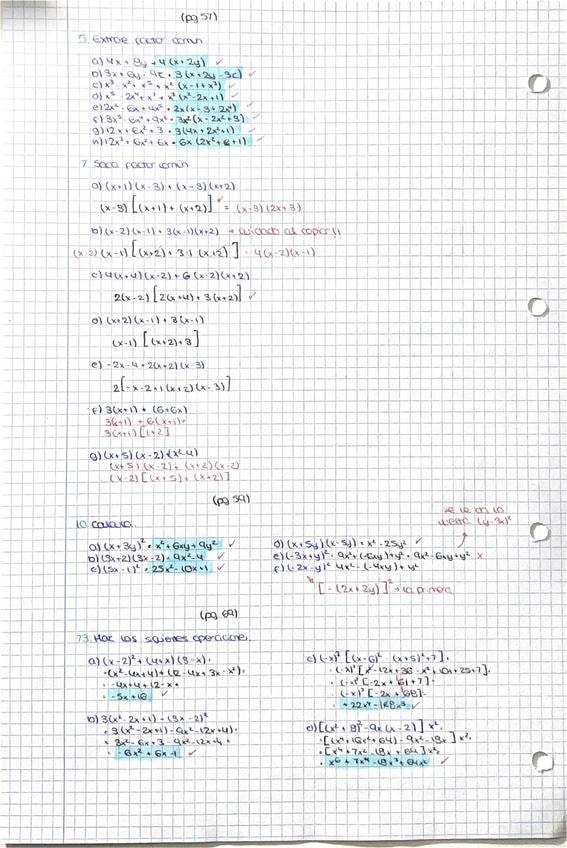 (pg 57)
5. Extrae factor común
a) 4x + 8y = 4(x+2y) ✓
b) 3x + 6y - 9c = 3(x+2y-3c) ✓
c) x³ - x² + x⁵ = x²(x-1+x³) ✓
d) x⁵ - 2x⁴ + x³ = x³(x²-2x+1) ✓
e) 2x² - 6x + 4x³ = 2x(x-3+2x²) ✓
f) 3x³ - 6x⁴ + 9x² = 3x²(x-2x²+3) ✓
g) 12x + 6x² + 3 = 3(4x+2x²+1) ✓
h) 12x³ + 6x² + 6x = 6x(2x²+x+1) ✓
7. Saca factor común
a) (x+1)(x-3) + (x-3)(x+2)
(x-3)[(x+1) + (x+2)] ✓ = (x-3)(2x+3)
b) (x-2)(x-1) + 3(x-1)(x+2) → cuidado al copiar!!
(x-2)(x-1)[(x+2) + 3·1(x+2)] = 4(x-2)(x-1)
c) 4(x+4)(x-2) + 6(x-2)(x+2)
2(x-2)[2(x+4) + 3(x+2)] ✓
d) (x+2)(x-1) + 3(x-1)
(x-1)[(x+2)+3]
e) -2x-4+2(x+2)(x-3)
2[-x-2+1(x+2)(x-3)]
f) 3(x+1) + (6+6x)
3(x+1) + 6(x+1) =
3(x+1)[1+2]
g) (x+5)(x-2)+(x²-4)
(x+5)(x-2) + (x+2)(x-2)
(x-2)[(x+5) + (x+2)]
(pg 59)
10. Calcula.
a) (x+3y)² = x²+6xy+9y² ✓
b) (3x+2)(3x-2) = 9x²-4 ✓
c) (5x-1)² = 25x²-10x+1 ✓
d) (x+5y)(x-5y) = x²-25y² ✓
e) (-3x+y)² = 9x²+(-6xy)+y² = 9x²-6xy+y² x
f) (-2x-y)² 4x²-(-4xy)+y²
(y-3x)²
[-(2x+2y)]² → la primera
(pg 69)
73. Haz las siguientes operaciones.
a) (x-2)² + (4+x)(3-x) =
= (x²-4x+4) + (12-4x+3x-x²) =
= -4x+4+12-x =
= -5x+16 ✓
b) 3(x²-2x+1) - (3x-2)²
= 3(x²-2x+1) - 9x²-12x+4) =
= 3x²-6x+3-9x²-12x+4 =
= -6x²+6x-1 ✓
c) (-x)³[(x-6)² (x+5)²+7] =
= (-x)³[x²-12x+36-x²+10x+25+7] =
= (-x)³[-2x+61+7] =
= (-x)³[-2x+68] =
d) [(x²+8)²-9x(x-2)] x² =
= [(x⁴+16x²+64)-9x²-18x] x² =
= [x⁴+7x²-18x+64] x² =
= x⁶+7x⁴-18x³+64x² ✓